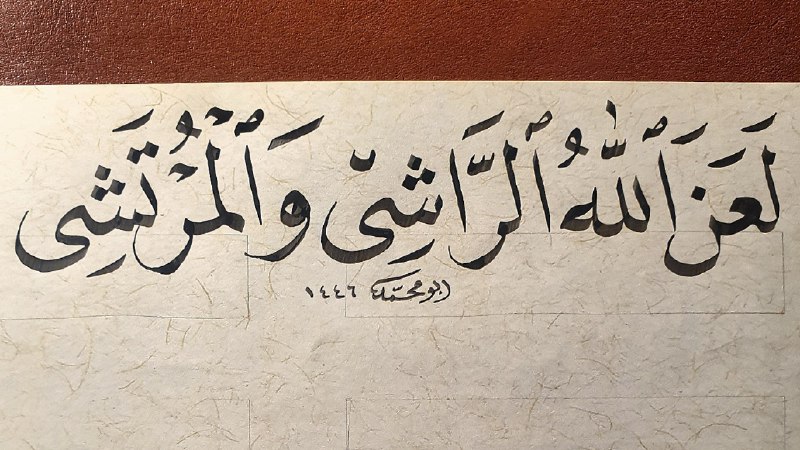 لَعَنَ ٱللَّهُ ٱلرَّاشِيَ وَٱلْمُرْتَشِي
ابو محمد ١٤٤٦